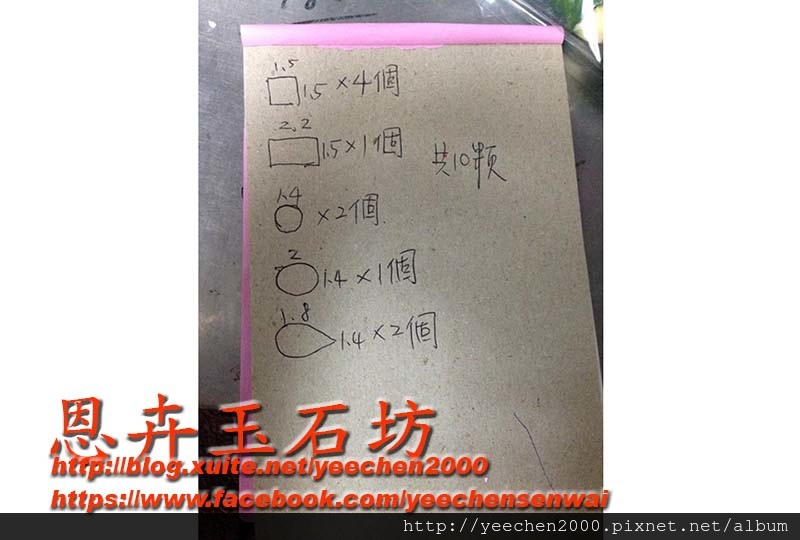 1.5
1.5 × 4個
2.2
1.5 × 1個
共10顆
1.4
× 2個
2
1.4 × 1個
1.8
1.4 × 2個
恩卉玉石坊
http://blog.xuite.net/yeechen2000
https://www.facebook.com/yeechensenwai
http://yeechen2000.pixnet.net/album